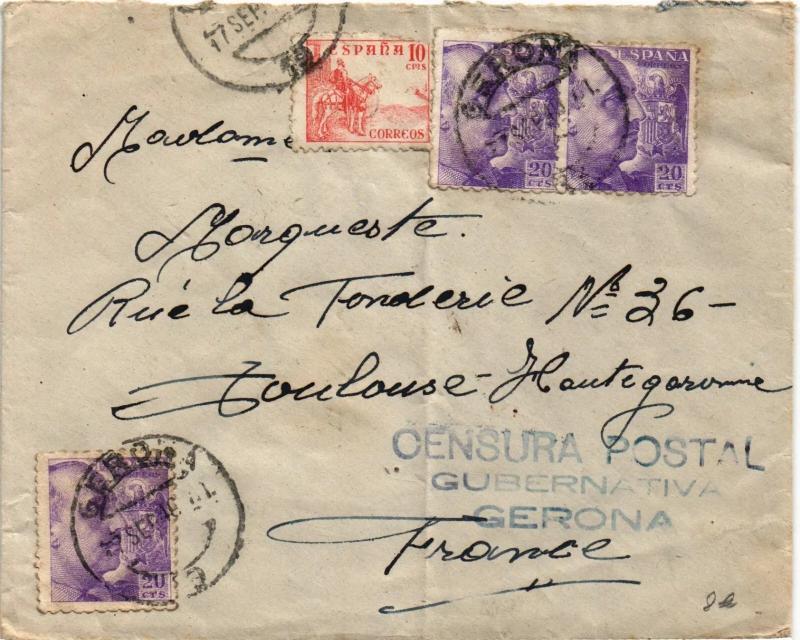 17 SEP
ESPAÑA 10
CTS
CORREOS
GERONA
ESPAÑA
CORREOS
20
CTS
20
CTS
Madame
Marqueste.
Rue la Fonderie Nº 36-
Toulouse- Hautegaronne
CENSURA POSTAL
GUBERNATIVA
GERONA
France
GERONA
17 SEP
20
CTS